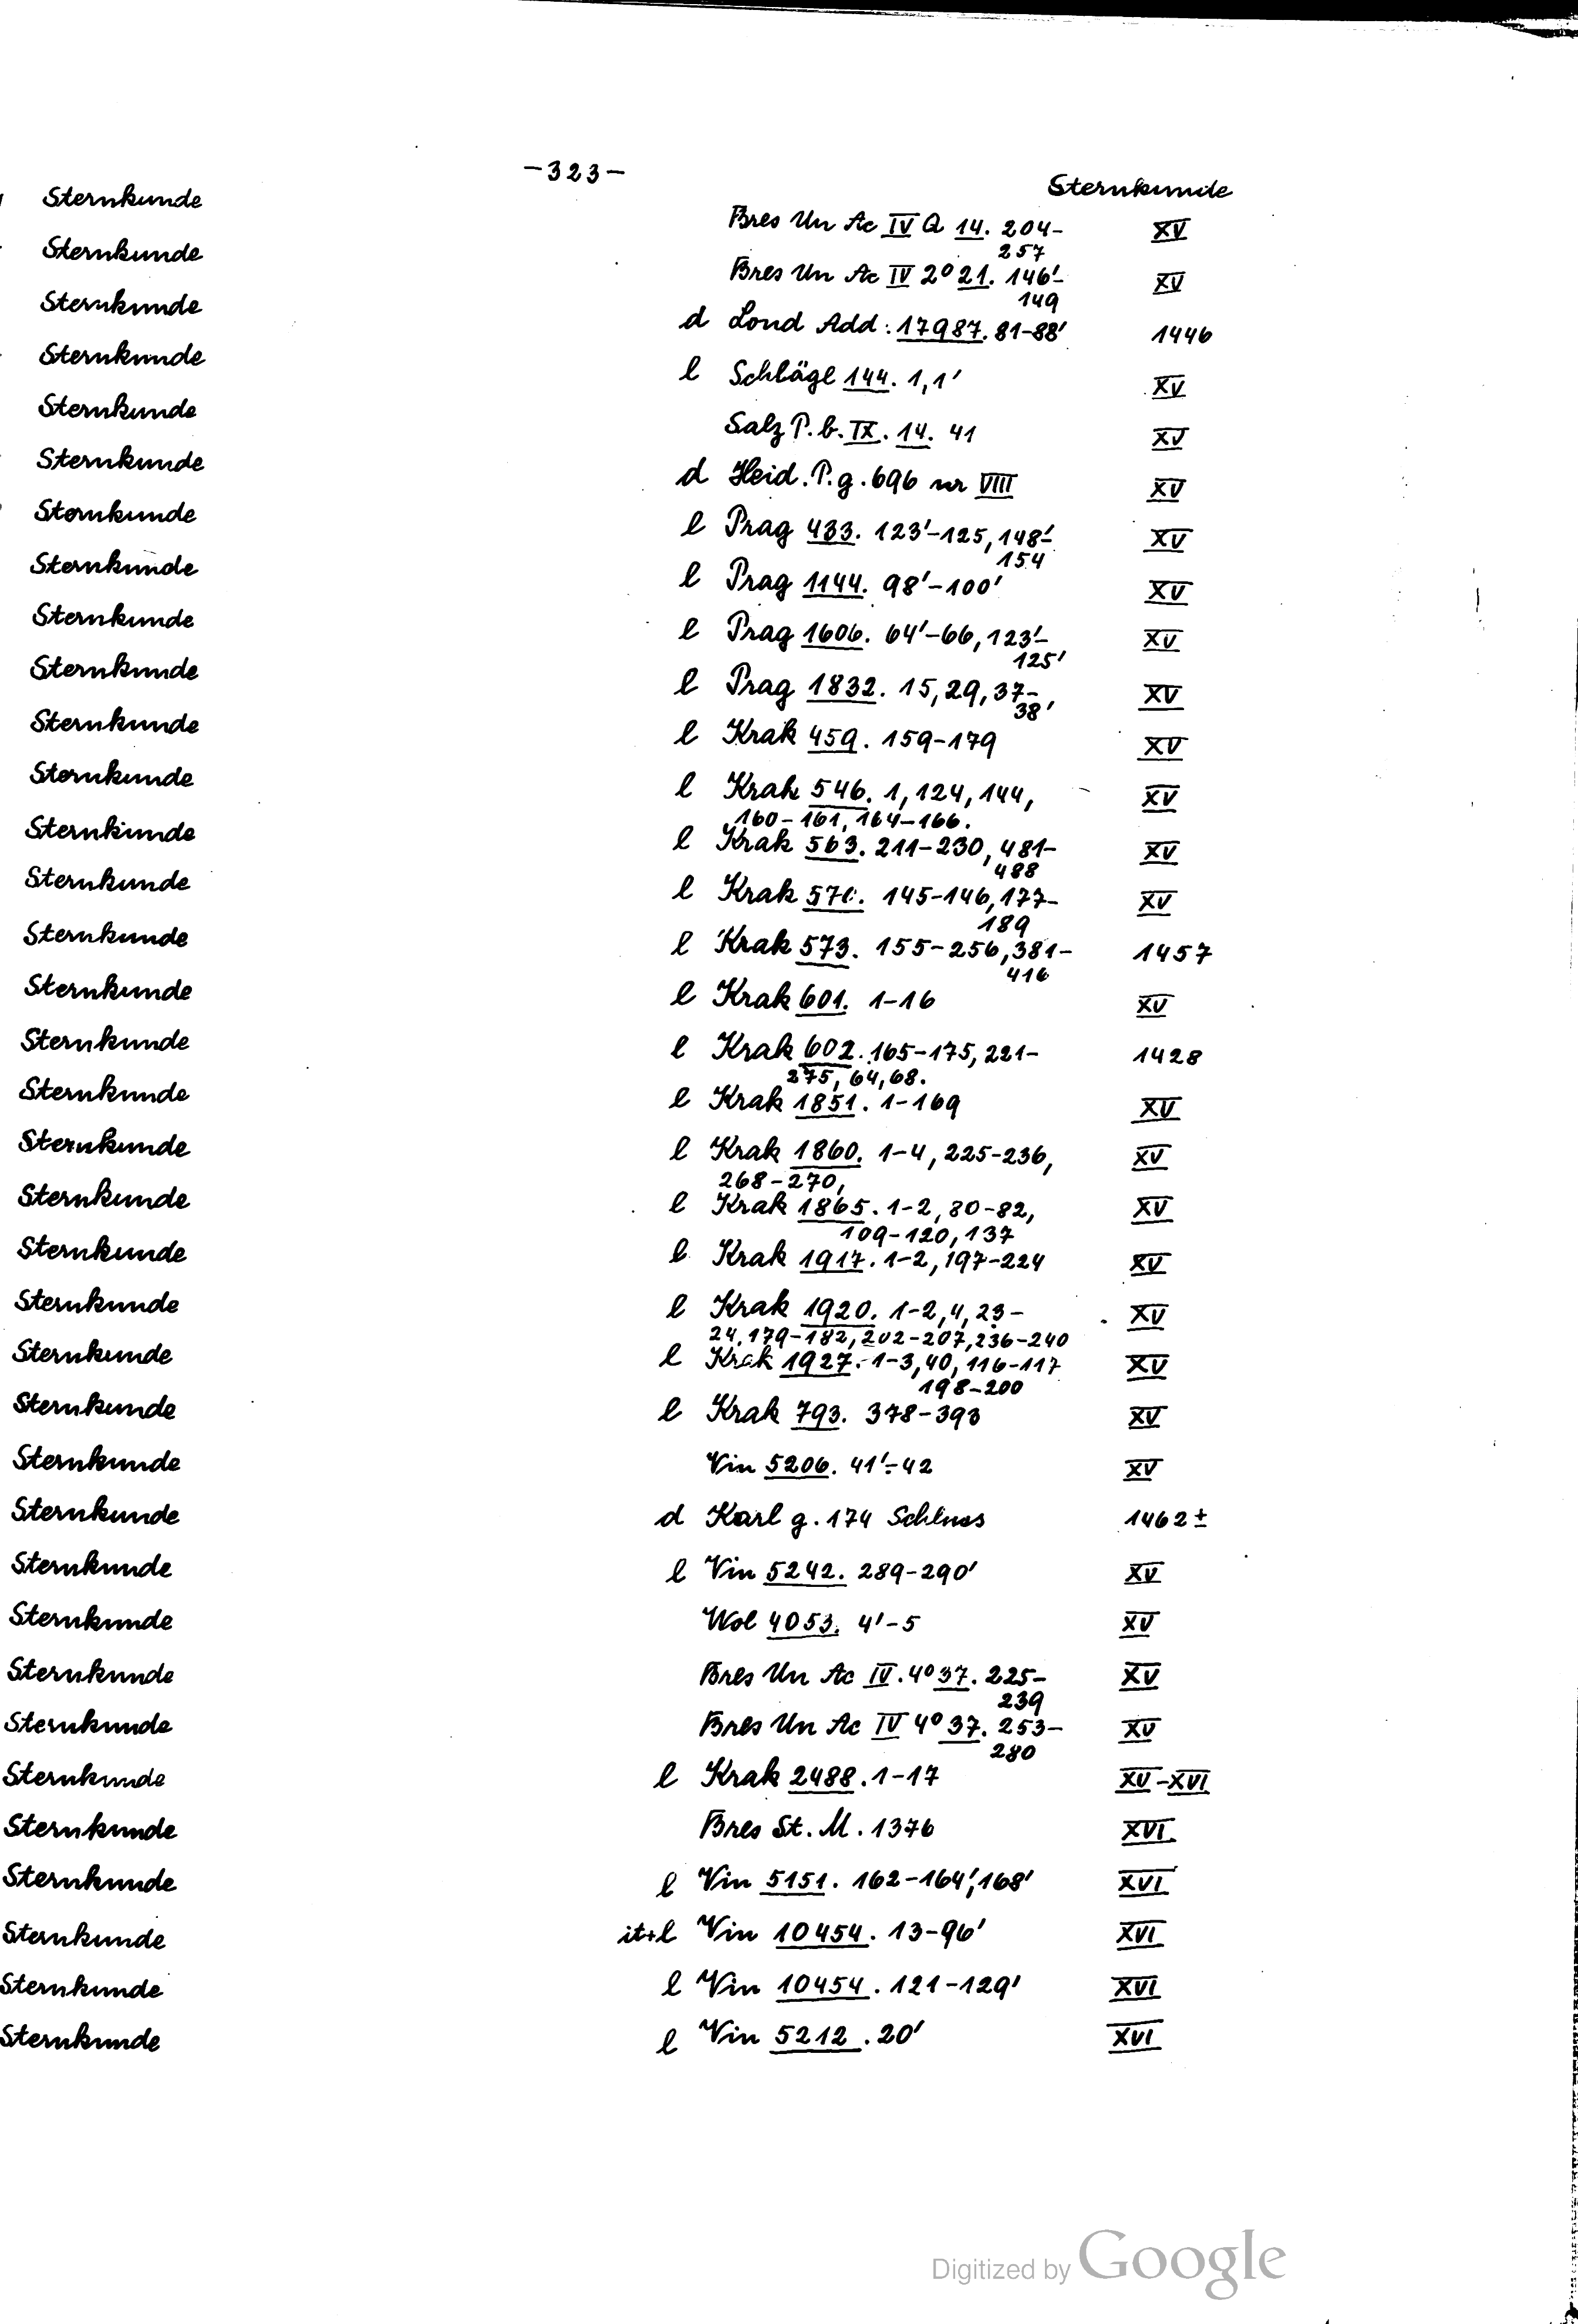 -323-
Sternkunde
Sternkunde Bres Un Ac IV Q 14. 204- XV
257
Sternkunde Bres Un Ac IV 2º 21. 146'- XV
149
Sternkunde d Lond Add. 17987. 81-88' 1446
Sternkunde l Schlägl 144. 1,1' XV
Sternkunde Salz P. b. IX. 14. 41 XV
Sternkunde d Heid. P. g. 696 nr VIII XV
Sternkunde l Prag 433. 123'-125, 148'- XV
154
Sternkunde l Prag 1144. 98'-100' XV
Sternkunde l Prag 1606. 64'-66, 123'- XV
125'
Sternkunde l Prag 1832. 15, 29, 37- XV
38'
Sternkunde l Krak 459. 159-179 XV
Sternkunde l Krak 546. 1, 124, 144, XV
160-161, 164-166.
Sternkunde l Krak 563. 211-230, 481- XV
488
Sternkunde l Krak 570. 145-146, 177- XV
189
Sternkunde l Krak 573. 155-256, 381- 1457
416
Sternkunde l Krak 601. 1-16 XV
Sternkunde l Krak 602. 165-175, 221- 1428
275, 64, 68.
Sternkunde l Krak 1851. 1-169 XV
Sternkunde l Krak 1860. 1-4, 225-236, XV
268-270,
Sternkunde l Krak 1865. 1-2, 80-82, XV
109-120, 137
Sternkunde l Krak 1917. 1-2, 197-224 XV
Sternkunde l Krak 1920. 1-2, 4, 23- XV
24, 179-182, 202-207, 236-240
Sternkunde l Krak 1927. 1-3, 40, 116-117 XV
198-200
Sternkunde l Krak 793. 378-393 XV
Sternkunde Vin 5206. 41'-42 XV
Sternkunde d Karl g. 174 Schluss 1462±
Sternkunde l Vin 5242. 289-290' XV
Sternkunde Wol 4053. 4'-5 XV
Sternkunde Bres Un Ac IV. 4º 37. 225- XV
239
Sternkunde Bres Un Ac IV 4º 37. 253- XV
280
Sternkunde l Krak 2488. 1-17 XV-XVI
Sternkunde Bres St. M. 1376 XVI
Sternkunde l Vin 5151. 162-164', 168' XVI
Sternkunde it+l Vin 10454. 13-96' XVI
Sternkunde l Vin 10454. 121-129' XVI
Sternkunde l Vin 5212. 20' XVI
Digitized by Google